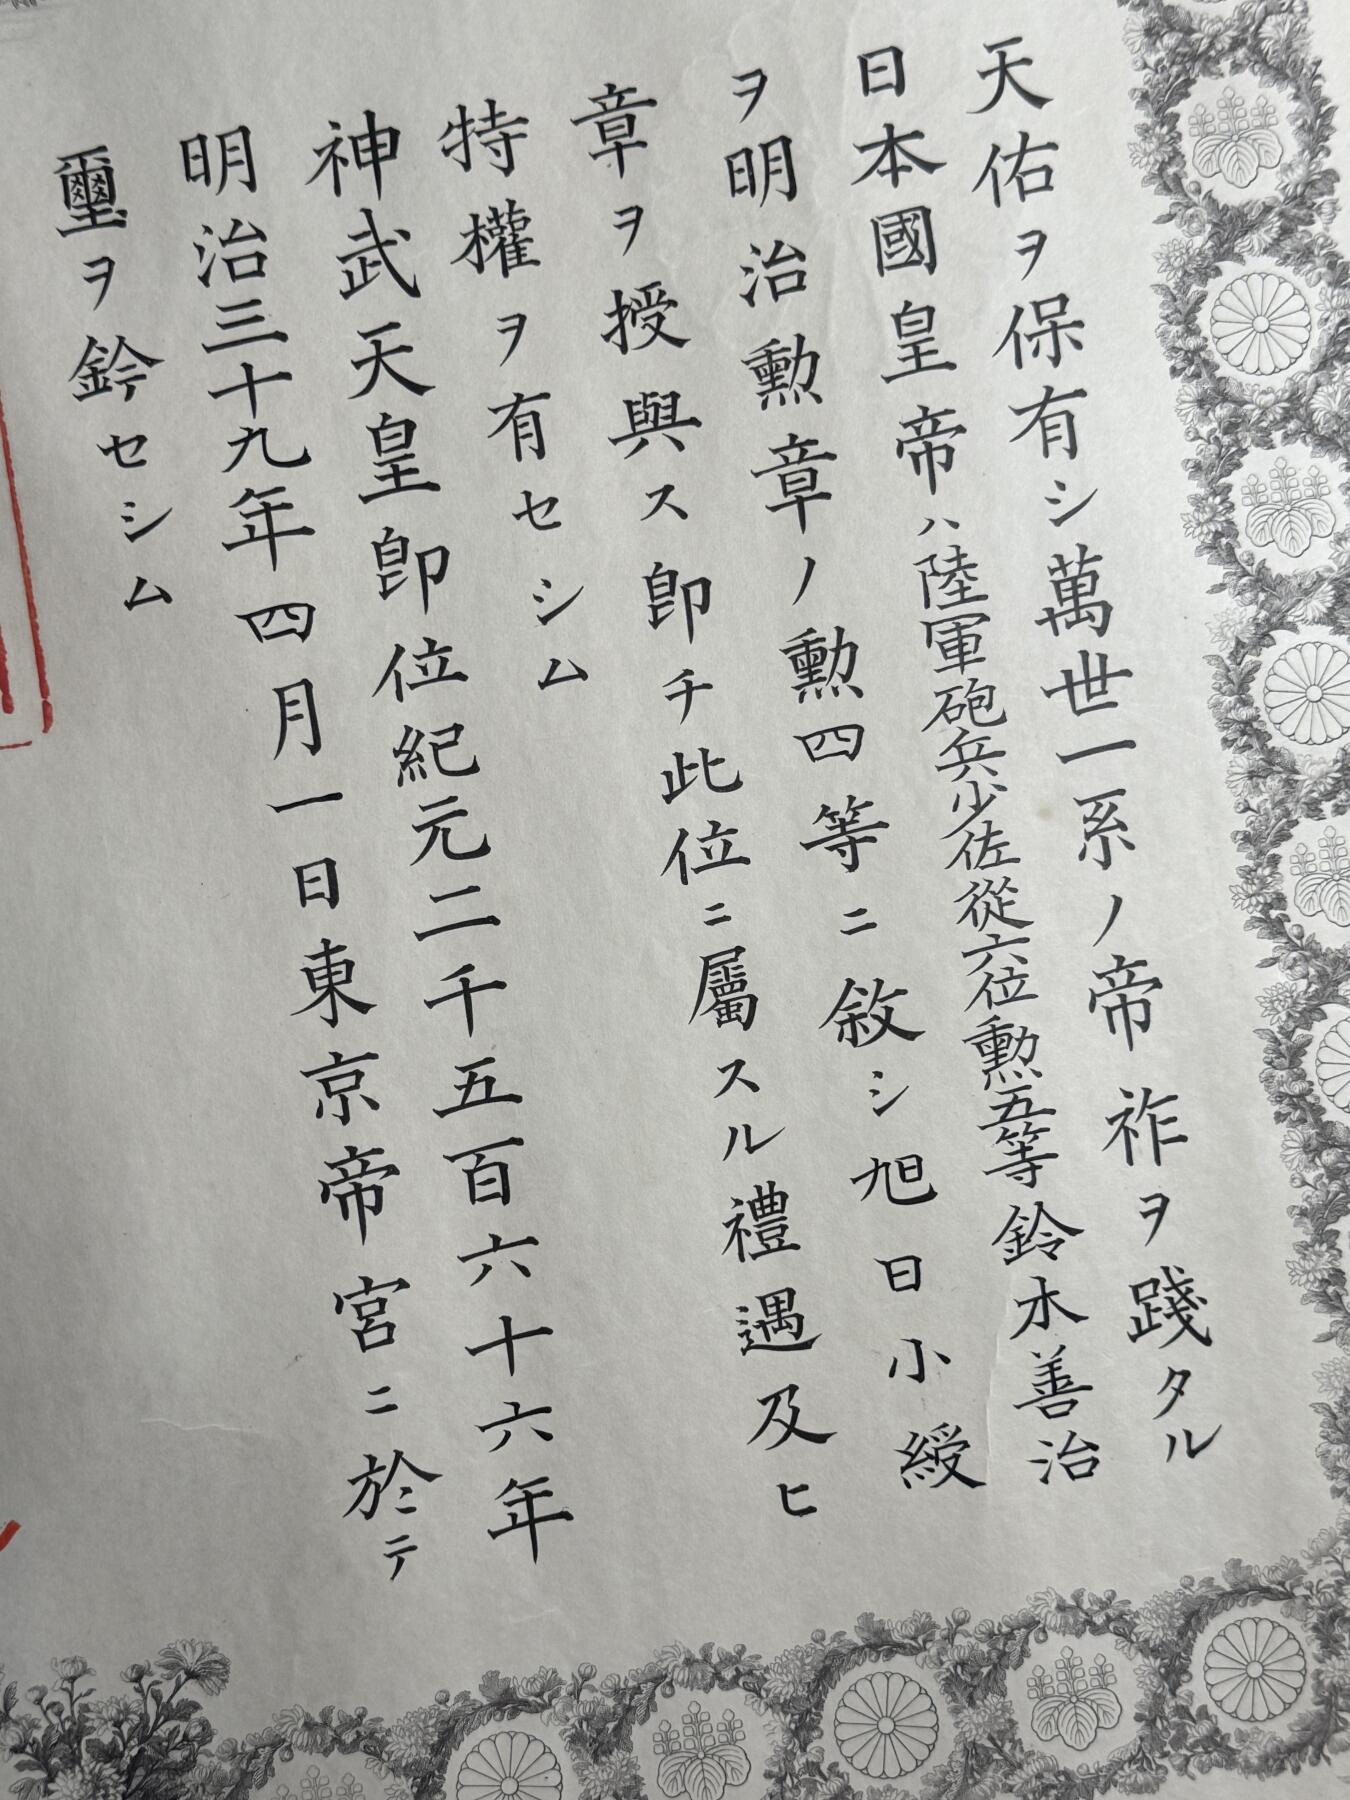 天佑ヲ保有シ萬世一系ノ帝祚ヲ踐タル
日本國皇帝ハ陸軍砲兵少佐從六位勲五等鈴木善治
ヲ明治勲章ノ勲四等ニ敘シ旭日小綬
章ヲ授與ス卽チ此位ニ屬スル禮遇及ヒ
特權ヲ有セシム
神武天皇卽位紀元二千五百六十六年
明治三十九年四月一日東京帝宮ニ於テ
璽ヲ鈐セシム